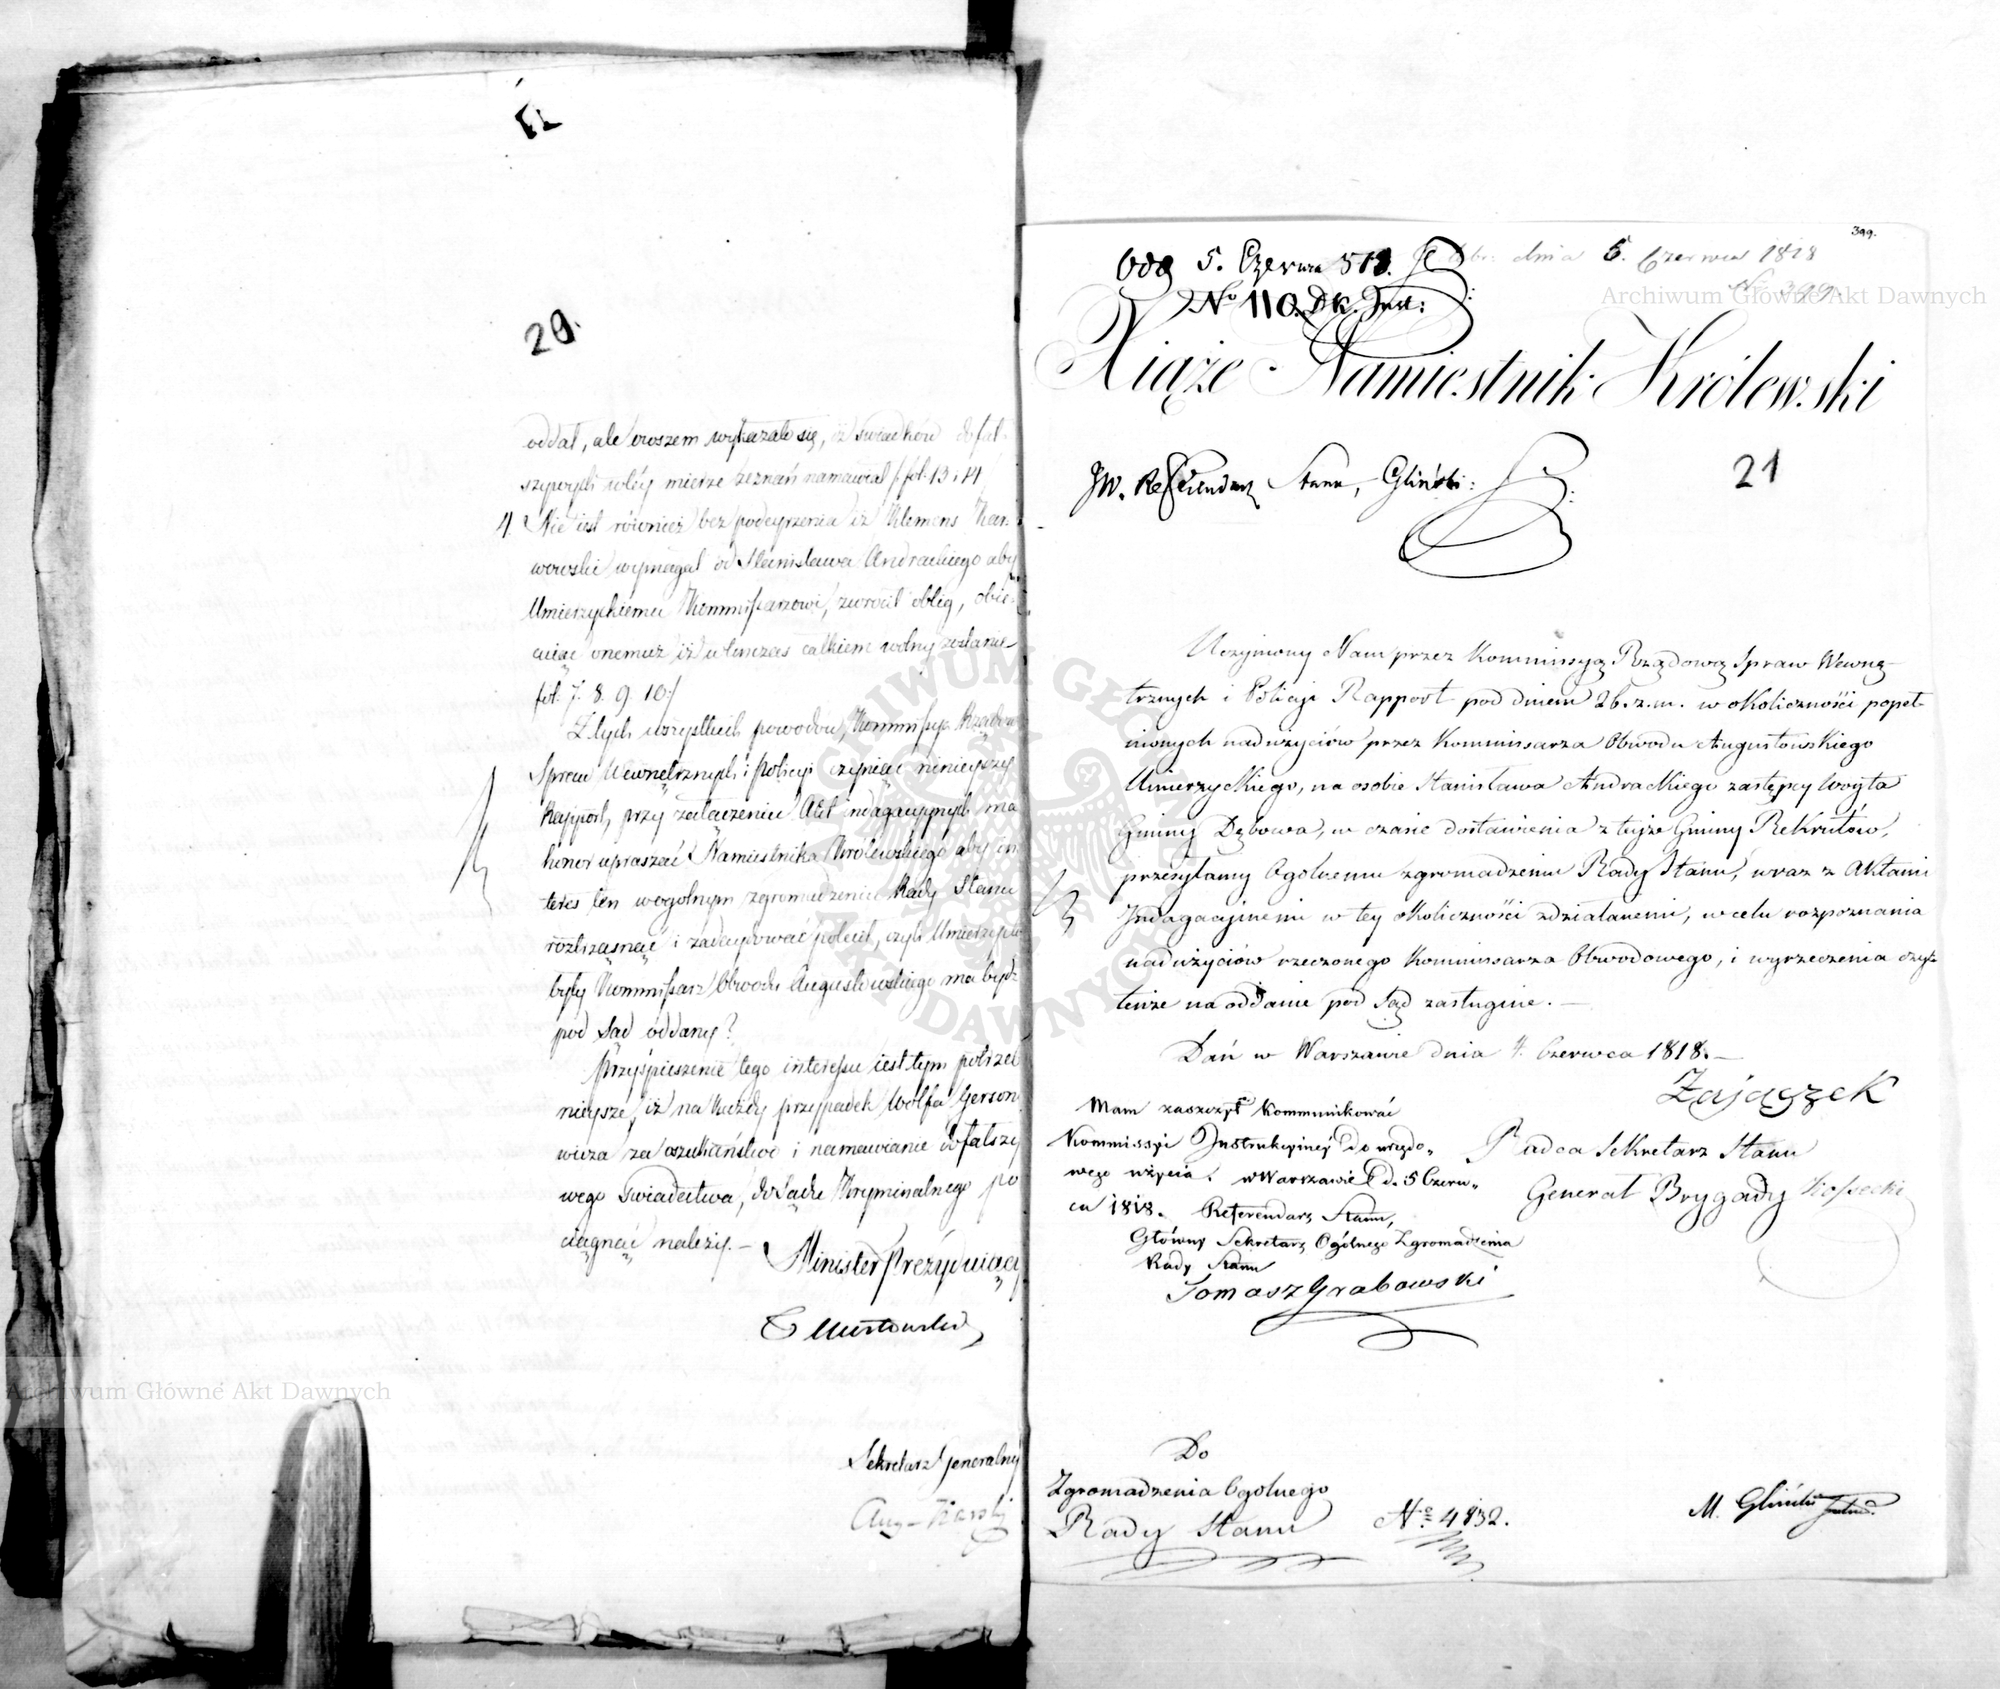 20.
oddał, ale owszem wykazało się, iż świadków do fał-
szywych w téy mierze zeznań namawiał /: fol. 13 i 14
4. Nie iest również bez podeyrzenia iż Klemens
wymagał od Stanisława Andrackiego aby
Umierzyckiemu Kommissarzowi, zwrócił oblig, obie-
cuiąc onemuż iż wówczas całkiem wolny zostanie
fol. 7. 8. 9. 10:/
Z tych wszystkich powodów, Kommissya Rządowa
Spraw Wewnętrznych i Policyi czyniąc ninieyszy
Rapport, przy załączeniu Akt indagacyynych ma
honor upraszać Namiestnika Królewskiego aby in-
teres ten w ogólnym zgromadzeniu Rady Stanu
roztrząsnąć i zadecydować polecił, czyli Umierzycki
były Kommissarz Obwodu Augustowskiego ma bydź
pod Sąd oddany?
Przyspieszenie tego interessu iest tym potrzeb
nieysze, iż na każdy przypadek Wolfa Gerson
wicza za oszukaństwo i namawianie do fałszy
wego świadectwa, do Sądu Kryminalnego po
ciągnąć należy. —
Minister Prezyduiący
T Mostowski
Sekretarz Generalny
Aug. Karski
399.
5. Czerwca 818.
dnia 5. Czerwca 1818
No 110. Dk. Inst:
No 399.
Xiąże Namiestnik Królewski
JW. Referendarz Stanu, Gliński:
21
Uczyniony Nam przez Kommissyą Rządową Spraw Wewnę-
trznych i Policyi Rapport pod dniem 26. z. m. w okoliczności popeł-
nionych nadużyciów przez Kommissarza Obwodu Augustowskiego
Umierzyckiego, na osobie Stanisława Andrackiego zastępcy Woyta
Gminy Dębowa, w czasie dostawienia z teyże Gminy Rekrutów,
przesyłamy Ogólnemu zgromadzeniu Rady Stanu, wraz z Aktami
Indagacyinemi w tey okoliczności zdziałanemi, w celu rozpoznania
nadużyciów rzeczonego Kommissarza Obwodowego, i wyrzeczenia czyli
tenże na oddanie pod Sąd zasługuie. —
Dań w Warszawie dnia 4. Czerwca 1818. —
Zajączek
Radca Sekretarz Stanu
Generał Brygady Kossecki
Mam zaszczyt kommunikować
Kommissyi Instrukcyiney do urzędo-
wego użycia. w Warszawie d. 5 Czerw-
ca 1818. Referendarz Stanu,
Główny Sekretarz Ogólnego Zgromadzenia
Rady Stanu
Tomasz Grabowski
Do
Zgromadzenia Ogólnego
Rady Stanu
No 4832.
M. Gliński
Archiwum Główne Akt Dawnych
Archiwum Główne Akt Dawnych
ARCHIWUM GŁÓWNE AKT DAWNYCH